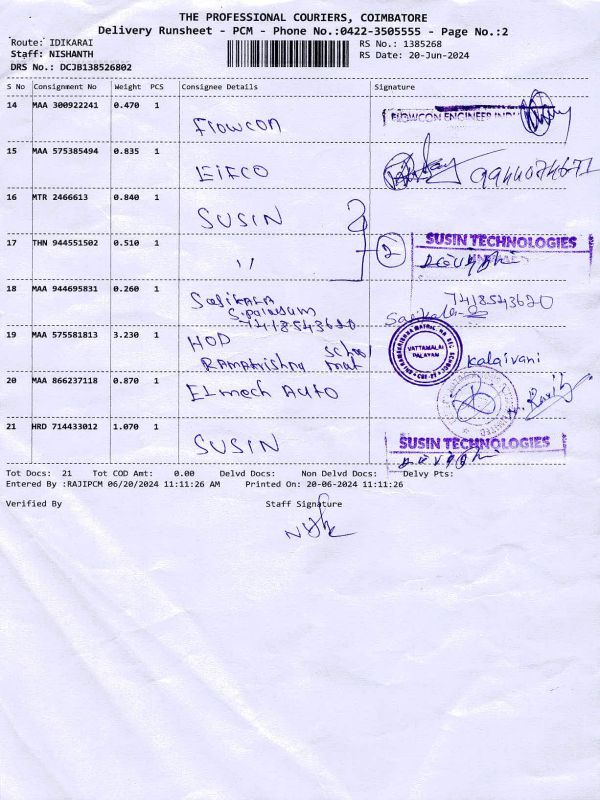 THE PROFESSIONAL COURIERS, COIMBATORE
Delivery Runsheet - PCM - Phone No.:0422-3505555 - Page No.:2
Route: IDIKARAI RS No.: 1385268
Staff: NISHANTH RS Date: 20-Jun-2024
DRS No.: DCJB138526802
S No Consignment No Weight PCS Consignee Details Signature
14 MAA 300922241 0.470 1 Flowcon FLOWCON ENGINEER INDIA
15 MAA 575385494 0.835 1 EIFCO 9944074671
16 MTR 2466613 0.840 1 SUSIN
17 THN 944551502 0.510 1 " 2 SUSIN TECHNOLOGIES
18 MAA 944695831 0.260 1 Sasikala 7418543620
S.palayam Sasikala
7418543620
19 MAA 575581813 3.230 1 HOD VATTAMALAI PALAYAM Kalaivani
Ramakrishna school mat
20 MAA 866237118 0.870 1 Elmech Auto
21 HRD 714433012 1.070 1 SUSIN SUSIN TECHNOLOGIES
Tot Docs: 21 Tot COD Amt: 0.00 Delvd Docs: Non Delvd Docs: Delvy Pts:
Entered By :RAJIPCM 06/20/2024 11:11:26 AM Printed On: 20-06-2024 11:11:26
Verified By Staff Signature